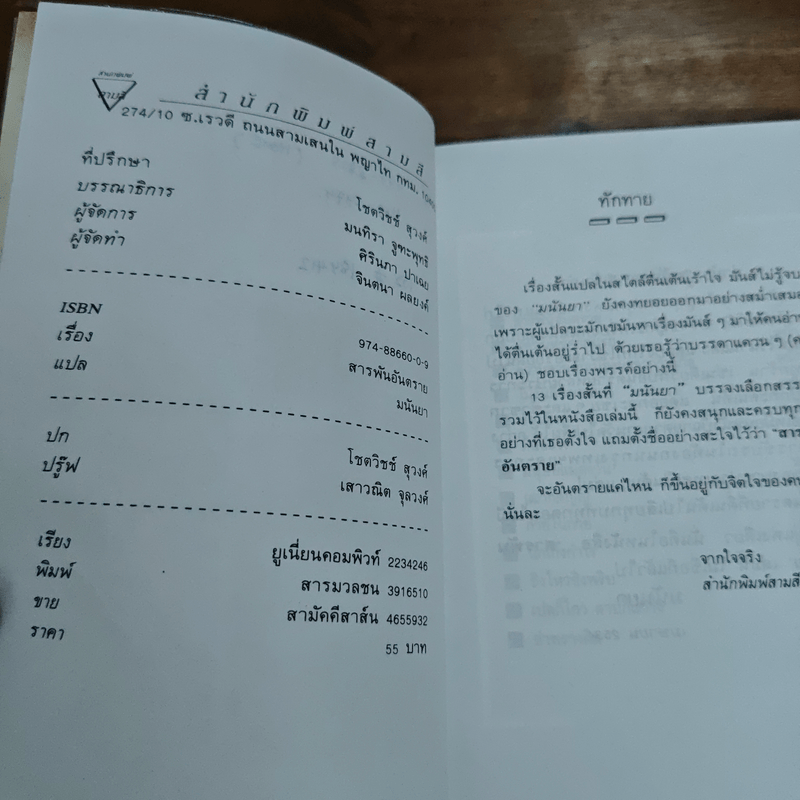 สำนักพิมพ์สามสี
สำนักพิมพ์สามสี
274/10 ซ.เรวดี ถนนสามเสนใน พญาไท กทม.
ที่ปรึกษา โชติวิชช์ สุวงค์
บรรณาธิการ มนทิรา จูฑะพุทธิ
ผู้จัดการ ศิรินภา ปาเฉย
ผู้จัดทำ จินตนา ผลยงค์
ISBN 974-88660-0-9
เรื่อง สารพันอันตราย
แปล มนันยา
ปก โชติวิชช์ สุวงค์
ปรู๊ฟ เสาวณิต จุลวงศ์
เรียง ยูเนี่ยนคอมพิวท์ 2234246
พิมพ์ สารมวลชน 3916510
ขาย สามัคคีสาส์น 4655932
ราคา 55 บาท
ทักทาย
เรื่องสั้นแปลในสไตล์ตื่นเต้นเร้าใจ มันส์ไม่รู้จบ
ของ "มนันยา" ยังคงทยอยออกมาอย่างสม่ำเสมอ
เพราะผู้แปลขะมักเขม้นหาเรื่องมันส์ ๆ มาให้คนอ่าน
ได้ตื่นเต้นอยู่ร่ำไป ด้วยเธอรู้ว่าบรรดาแควน ๆ (ค
อ่าน) ชอบเรื่องพรรค์อย่างนี้
13 เรื่องสั้นที่ "มนันยา" บรรจงเลือกสรร
รวมไว้ในหนังสือเล่มนี้ ก็ยังคงสนุกและครบทุก
อย่างที่เธอตั้งใจ แถมตั้งชื่ออย่างสะใจไว้ว่า "สาร
อันตราย"
จะอันตรายแค่ไหน ก็ขึ้นอยู่กับจิตใจของคน
นั่นละ
จากใจจริง
สำนักพิมพ์สามสี